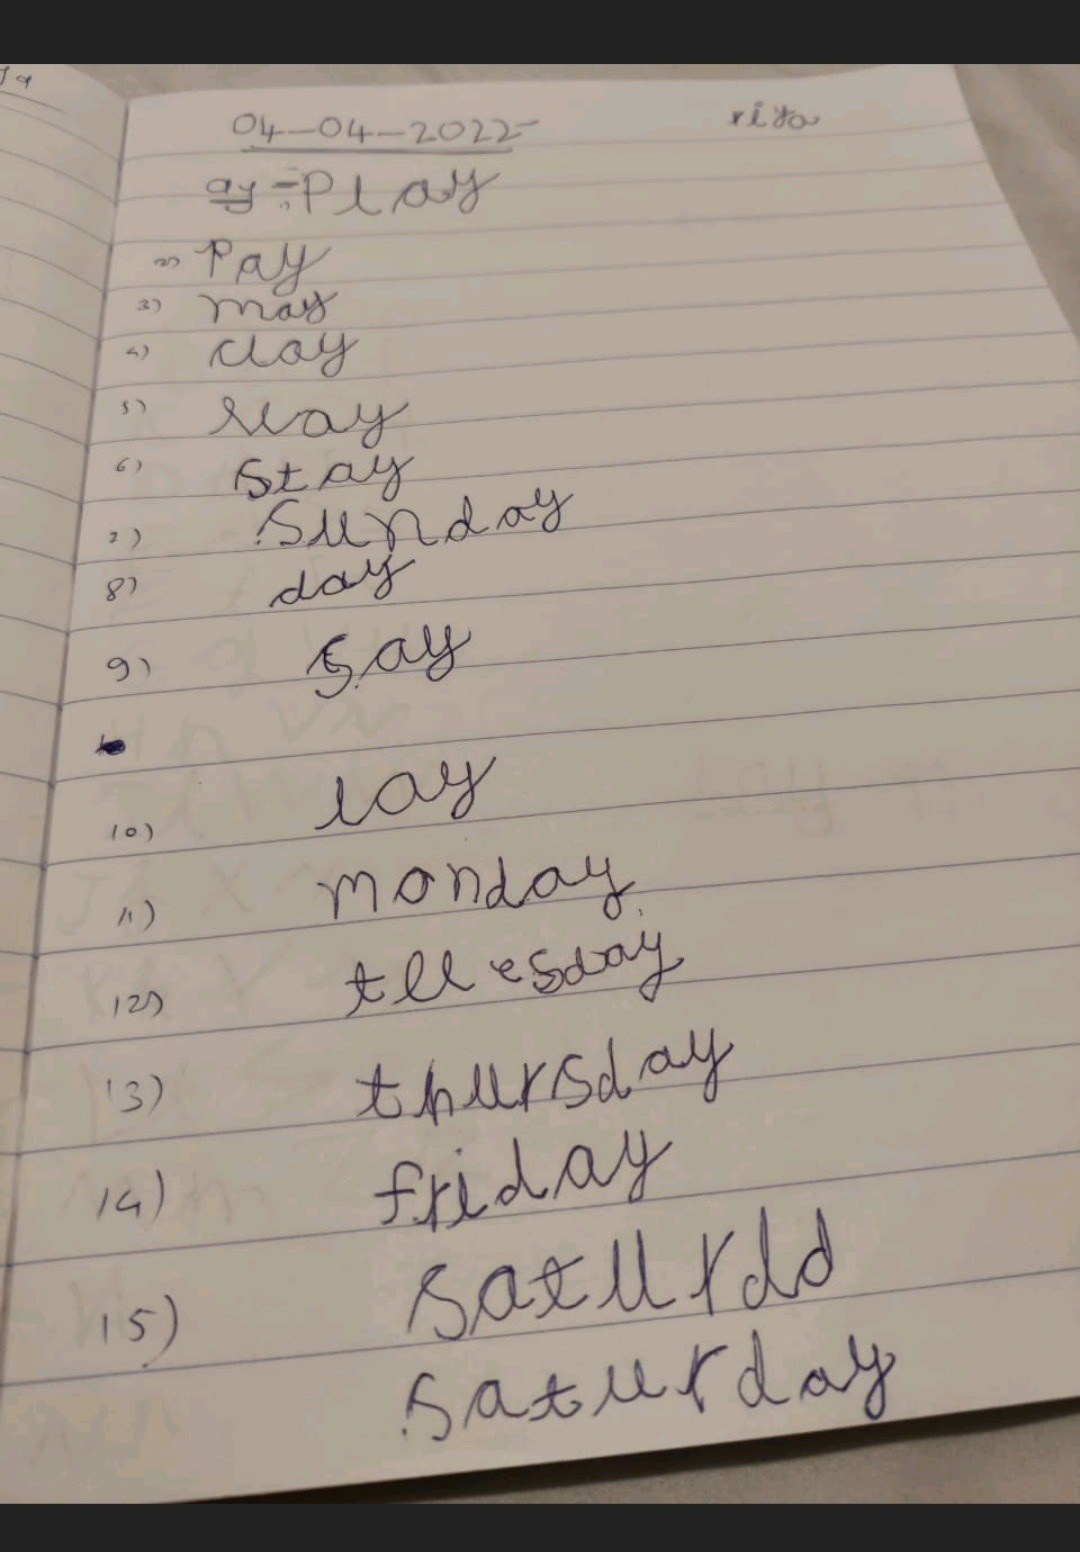 04-04-2022
ay = Play
2) Pay
3) may
4) clay
5) way
6) stay
7) Sunday
8) day
9) say
10) lay
11) monday
12) tuesday
13) thursday
14) friday
15) saturdd
saturday